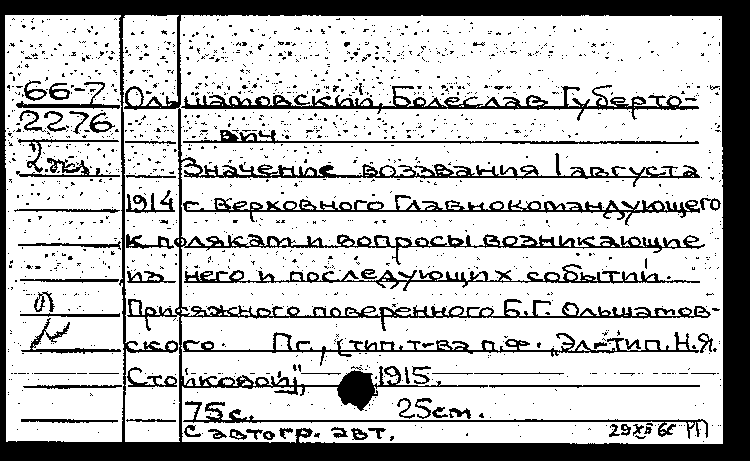 66-7 Ольшамовский, Болеслав Губерто-
2276 вич.
2 экз. Значение воззвания 1 августа
1914 г. Верховного Главнокомандующего
к полякам и вопросы возникающие
из него и последующих событий.
Присяжного поверенного Б.Г. Ольшамов-
ского. Пг., [тип. т-ва п.ф. „Эл-тип. Н.Я.
Стойковой"], 1915.
75с. 25см.
С автогр. авт. 29 XII 66